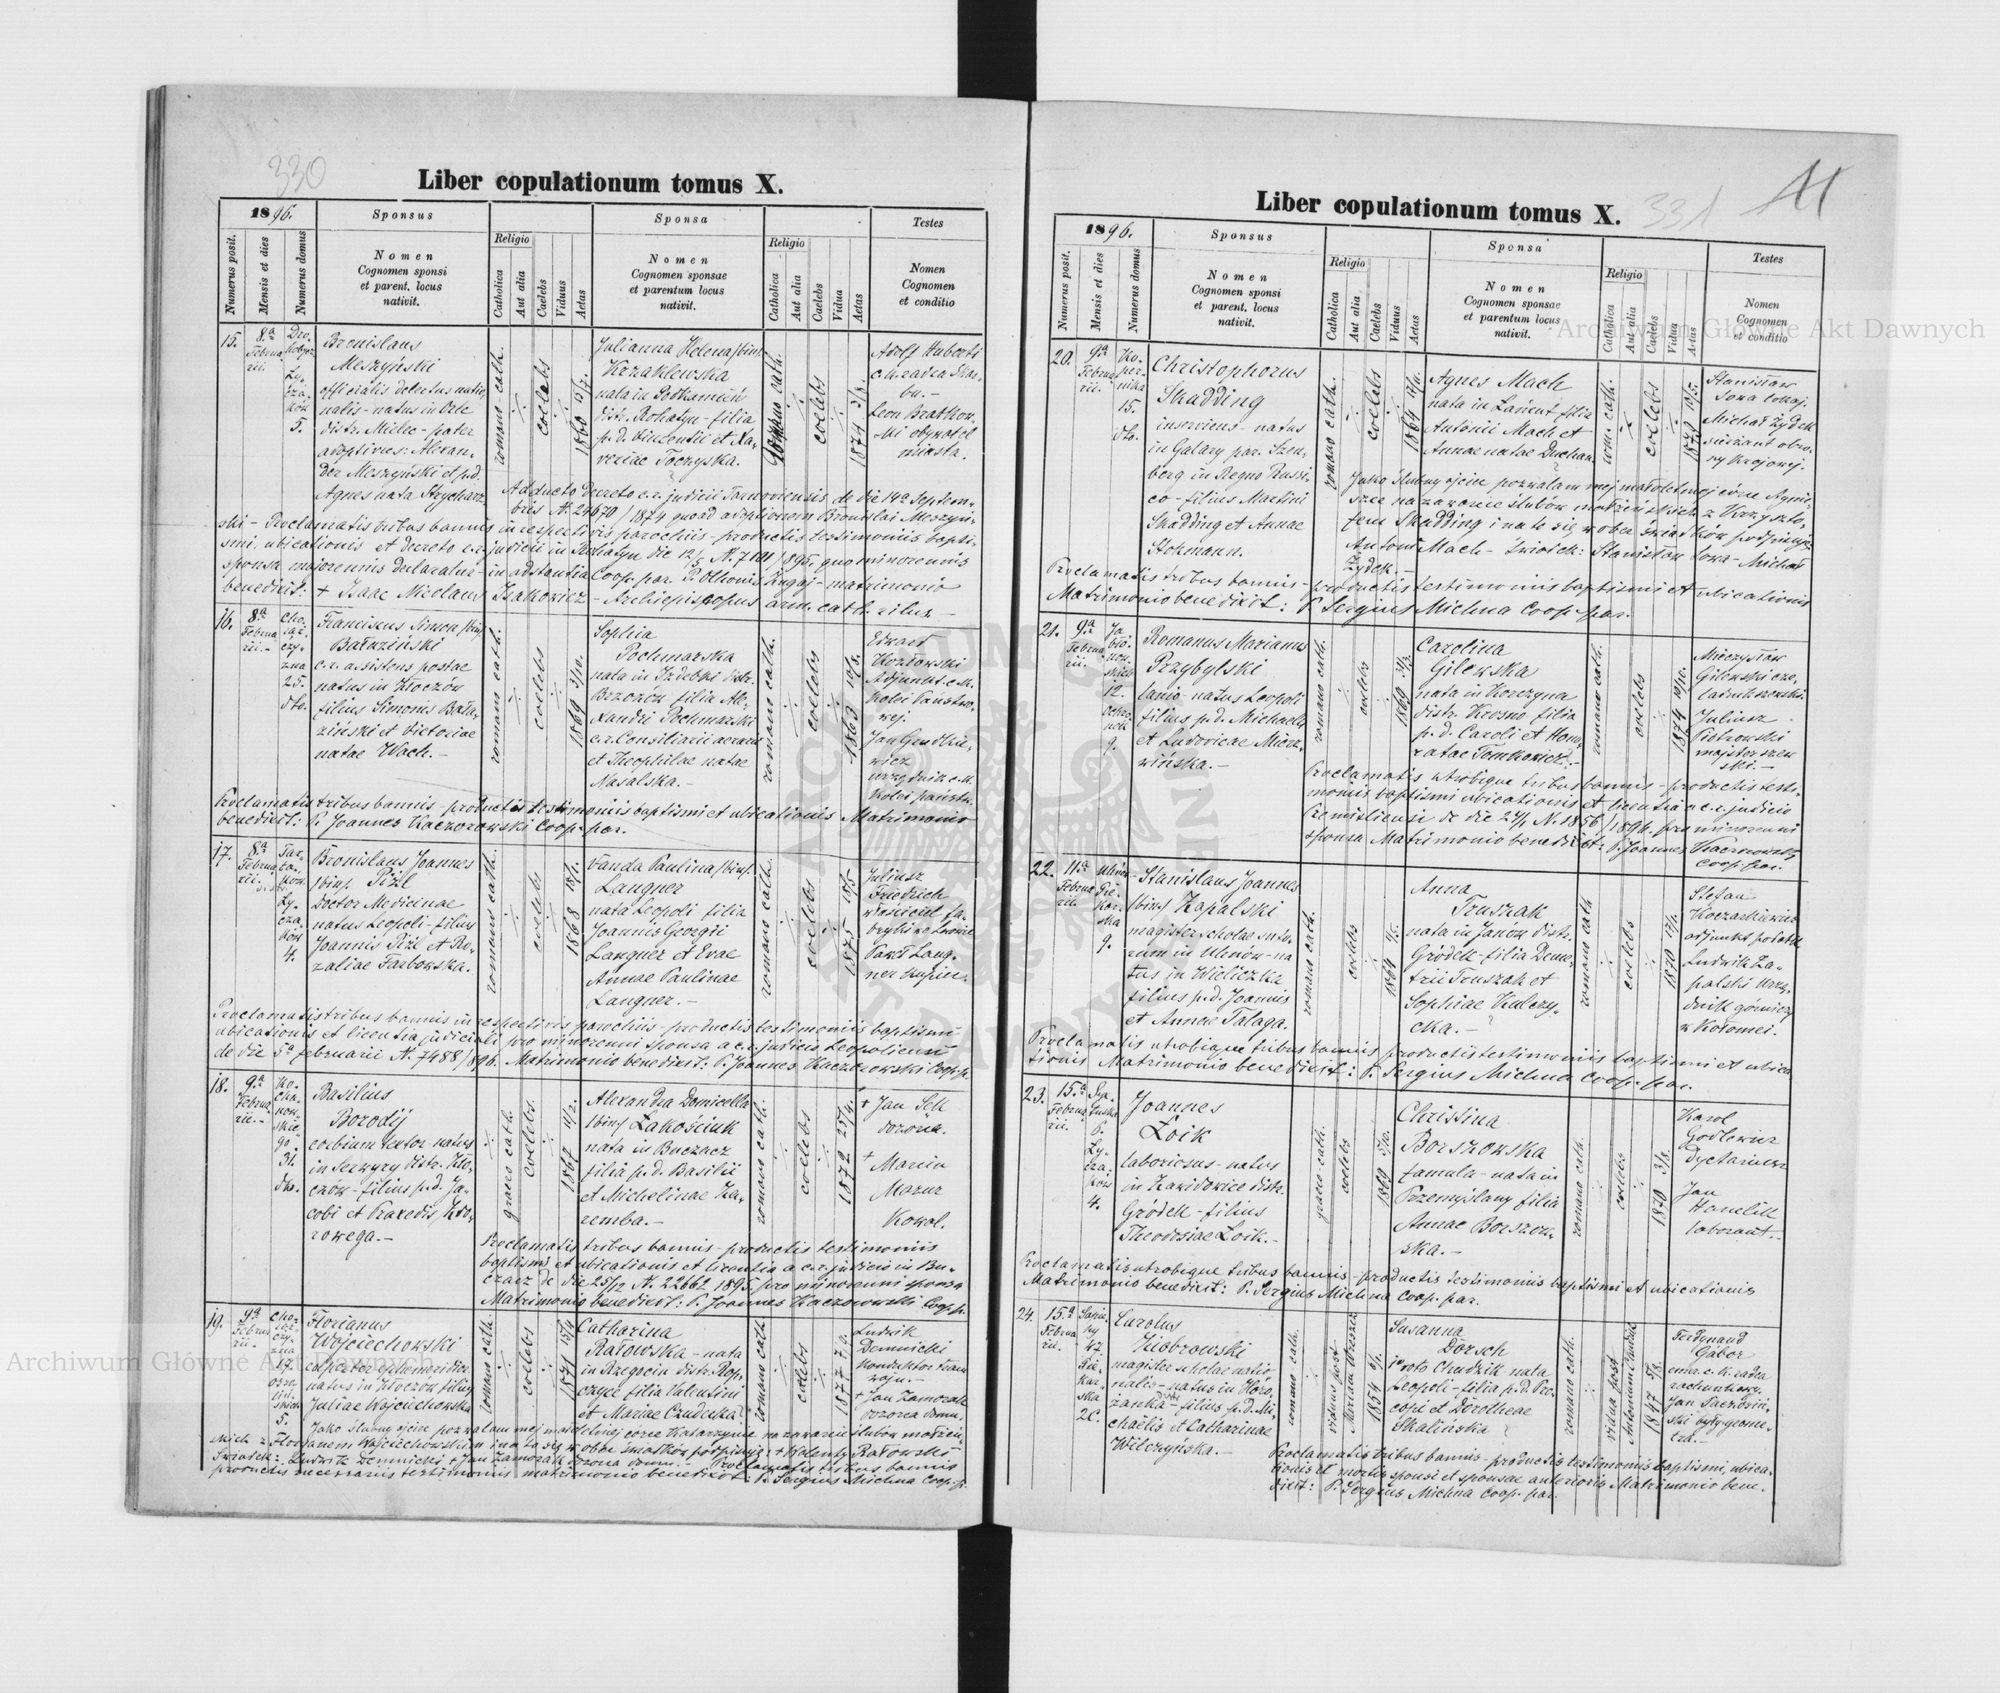 330
Liber copulationum tomus X.
1896.
Sponsus
Sponsa
Testes
Numerus posit.
Mensis et dies
Numerus domus
Nomen
Cognomen sponsi
et parent. locus
nativit.
Religio
Catholica
Aut alia
Caelebs
Viduus
Aetas
Nomen
Cognomen sponsae
et parentum locus
nativit.
Religio
Catholica
Aut alia
Caelebs
Vidua
Aetas
Nomen
Cognomen
et conditio
15.
8a
Februa
rii.
Ły-
cza-
ków
5.
Bronislaus
Meszyński
officialis delectus natio
nalis - natus in
distr. Mielec - pater
adoptivus: Alexan-
der Meszyński et p.d.
Agnes nata
romano-cath.
coelebs
1860
Julianna Helena /bin/
Krzaklewska
nata in Podkamień
distr. Rohatyn - filia
p. d. Vincentii et Xa-
veriae Toczyska.
romano cath.
coelebs
1874 3/8.
Adolf Huberti
c. k. radca Skar-
bu.-
Leon Bratkow-
ski obywatel
miasta.
Adducto Decreto c.r. judicii Tarnoviensis de die 14a Septem-
bris N. 24670/1874 quoad adoptionem Bronislai Meszyń-
ski - Proclamatis tribus bannis in respectivis parochiis - productis testimoniis bapti-
smi, ubicationis et decreto c.r. judicii in Rohatyn die 12/5 N. 7101/1895. quo minorennis
sponsa majorennis declaratur - in adstantia Coop. par. P. Othonis - matrimonio
benedixit: + Isaac Nicolaus Isakowicz - Archiepiscopus arm. cath. ritus -
16.
8a
Februa
rii.-
Cho-
rąż-
czy-
zna
25.
dto.
Franciscus Simon /bin/
Bałaziński
c.r. assistens postae
natus in Złoczów
filius Simonis Bała-
ziński et Victoriae
natae Wach.-
romano cath.
coelebs
1869 3/10.
Sophia
Pochmarska
nata in Izdebki distr.
Brzozów filia Ale-
xandri Pochmarski
c.r. Consiliarii aerarii
et Theophilae natae
Nasalska.-
romano cath.
coelebs
1863 10/8.
Edward
Kozłowski
Adjunkt c.k.
kolei Państwo-
wej.
Jan
wicz
urzędnik c.k.
kolei państw.
Proclamatis tribus bannis - productis testimoniis baptismi et ubicationis Matrimonio
benedixit: P. Joannes Kaczorowski Coop. par.
17.
8a
Februa
rii.
Ły-
cza-
ków
4.
Bronislaus Joannes
/bin/ Piżl
Doctor Medicinae
natus Leopoli - filius
Joannis Piżl et Ro-
zaliae Farbowska.
romano cath.
coelebs
1868
Vanda Paulina /bin/
Langner
nata Leopoli filia
Joannis Georgii
Langner et Evae
Annae Paulinae
Langner.-
romano cath.
coelebs
1875
Juliusz
Friedrich
właściciel fa-
bryki we Lwowie
Karl Lang-
ner kupiec.
Proclamatis tribus bannis in respectivis parochiis - productis testimoniis baptismi
ubicationis et licentia judiciali pro minorenni sponsa a c.r. judicio Leopoliensi
de die 5a februarii N. 7488/896. Matrimonio benedixit: P. Joannes Kaczorowski Coop. p.
18.
9a
Februa
rii.-
Ko-
cha-
now-
skie
go
31.
dto.
Basilius
Borodij
corbium textor natus
in Jezwyry distr. Zło-
czów - filius p.d. Ja-
cobi et Praxedis
graeco cath.
coelebs.
1867 11/2.
Alexandra Domicella
/bin/ Łakościuk
nata in Buczacz
filia p.d. Basilii
et Michelinae Za-
remba.-
romano cath.
coelebs
1872 25/4.
+ Jan Sęk
dozorca.
+ Marcin
Mazur
kowal.
Proclamatis tribus bannis - productis testimoniis
baptismi et ubicationis et licentia a c.r. judicio in Bu-
czacz de die 25/12 N. 22662 1895. pro minorenni sponsa
Matrimonio benedixit: P. Joannes Kaczorowski Coop. p.
19.
9a
Februa
rii.
Cho-
rąż-
czy-
zna
17.
Osso-
liń-
skich
5.
Florianus
Wojciechowski
natus in Złoczów filius
Juliae Wojciechowska
romano cath.
coelebs
1871 15/4
Catharina
Ratowska - nata
in Rzegocin distr. Rop-
czyce filia Valentini
et Mariae Czudecka
romano cath
coelebs
1877 7/9.
Ludwik
Demnicki
konduktor tram
waju.-
+ Jan Zamorak
dozorca domu.
Jako ślubny ojciec pozwalam mej małoletniej córce Katarzynie na zawarcie ślubów małżeń-
skich z Florianem Wojciechowskim i na to się w obec świadków podpisuję + Walenty Ratowski
Świadek: Ludwik Demnicki + Jan Zamorak dozorca domu.- Proclamatis tribus bannis
productis necessariis testimoniis matrimonio benedixit: P. Sergius Michna Coop. p.
331
Liber copulationum tomus X.
1896.
Sponsus
Sponsa
Testes
Numerus posit.
Mensis et dies
Numerus domus
Nomen
Cognomen sponsi
et parent. locus
nativit.
Religio
Catholica
Aut alia
Caelebs
Viduus
Aetas
Nomen
Cognomen sponsae
et parentum locus
nativit.
Religio
Catholica
Aut alia
Caelebs
Vidua
Aetas
Nomen
Cognomen
et conditio
20.
9a
Februa
rii.
Ko-
per-
nika
15.
dto.
Christophorus
Skadding
inserviens - natus
in Galary par. Szen-
berg in Regno Russi-
co - filius Martini
Skadding et Annae
Hokmann.
romano cath.
coelebs
1864 17/11.
Agnes Mach
nata in Łańcut filia
Antonii Mach et
Annae natae Duchan.
rom. cath.
coelebs
1879 10/5.
Stanisław
Sowa lokaj.
Michał Żydek
sierżant obro-
ny krajowej.
Jako ślubny ojciec pozwalam mej małoletniej córce Agni-
szce na zawarcie ślubów małżeńskich z Krzyszto-
fem Skadding i na to się w obec świadków podpisuję
Antoni Mach - Świadek: Stanisław Sowa - Michał
Żydek.-
Proclamatis tribus bannis - productis testimoniis baptismi et ubicationis
Matrimonio benedixit: P. Sergius Michna Coop. par.
21.
9a
Februa
rii.
Ja
bło-
now-
skich
12.
Ochro-
nek
9.
Romanus Marianus
Przybylski
lanio - natus Leopoli
filius p.d. Michaelis
et Ludovicae Mierz-
wińska.-
romano cath.
coelebs
1869
Carolina
Gilewska
nata in Korczyna
distr. Krosno filia
p. d. Caroli et Hono-
ratae Tomkowicz.-
romano cath.
coelebs
1874 19/10.
Mieczysław
Gilewski cze-
ladnik szewski
Juliusz
Piotrowski
majster szew
ski.-
Proclamatis utrobique tribus bannis - productis testi-
moniis baptismi ubicationis et licentia a c.r. judicio
Premisliensi de die 24/1 N. 1856/1896. pro minorenni
sponsa Matrimonio benedixit: P. Joannes Kaczorowski
Coop. par.
22.
11a
Februa
rii.
Uhnów-
Pie-
kar-
ska
9.
Stanislaus Joannes
/bin/ Zapalski
magister scholae
in Uhnów - na
tus in Wieliczka
filius p.d. Joannis
et Annae Talaga.
romano cath.
coelebs
1864
Anna
Truszak
nata in Janów distr.
Gródek - filia Deme-
trii Truszak et
Sophiae Kulczy-
cka.-
romano cath
coelebs
1870 17/1.
Stefan
Koczarkiewicz
adjunkt
Ludwik Za-
palski urzę-
dnik górniczy
w Kołomei.
Proclamatis utrobique tribus bannis productis testimoniis baptismi et ubica
tionis Matrimonio benedixit: P. Sergius Michna Coop. par.
23.
15.a
Februa
rii.
Syx-
tuska
6.
Ły-
cza-
ków
4.
Joannes
Łoik
laboriosus - natus
in Zawidowice distr.
Gródek - filius
Theodosiae Łoik.-
graeco cath.
coelebs
1869 5/10.
Christina
Borszowska
famula - nata in
Przemyślany filia
Annae Borszow-
ska.-
romano cath.
coelebs
1870 3/8.
Karol
Godlewicz
dyetariusz
Jan
Hamelik
laborant.-
Proclamatis utrobique tribus bannis - productis testimoniis baptismi et ubicationis
Matrimonio benedixit: P. Sergius Michna Coop. par.
24.
15.a
Februa
rii.
Sapie-
hy
47.
Pie-
kar-
ska
2C.
Carolus
Ziobrowski
magister scholae natio
nalis - natus in Horo-
żanka - filius p.d. Mi-
chaëlis et Catharinae
Wilczyńska.-
romano-cath.
viduus post
1854
Susanna
Dörsch
1o voto Chudzik nata
Leopoli - filia p.d. Pro-
copi et Dorotheae
Skalińska
romano cath.
vidua post
Antonium Chudzik
1847 5/8.
Ferdynand
Gabor
emer. c. k. radca
rachunkowy.
Jan
ski były geome-
tra.-
Proclamatis tribus bannis - productis testimoniis baptismi, ubica-
tionis et mortis sponsi et sponsae anterioris Matrimonio bene-
dixit: P. Sergius Michna Coop. par.
Archiwum Główne Akt Dawnych
Archiwum Główne Akt Dawnych
ARCHIWUM GŁÓWNE AKT DAWNYCH